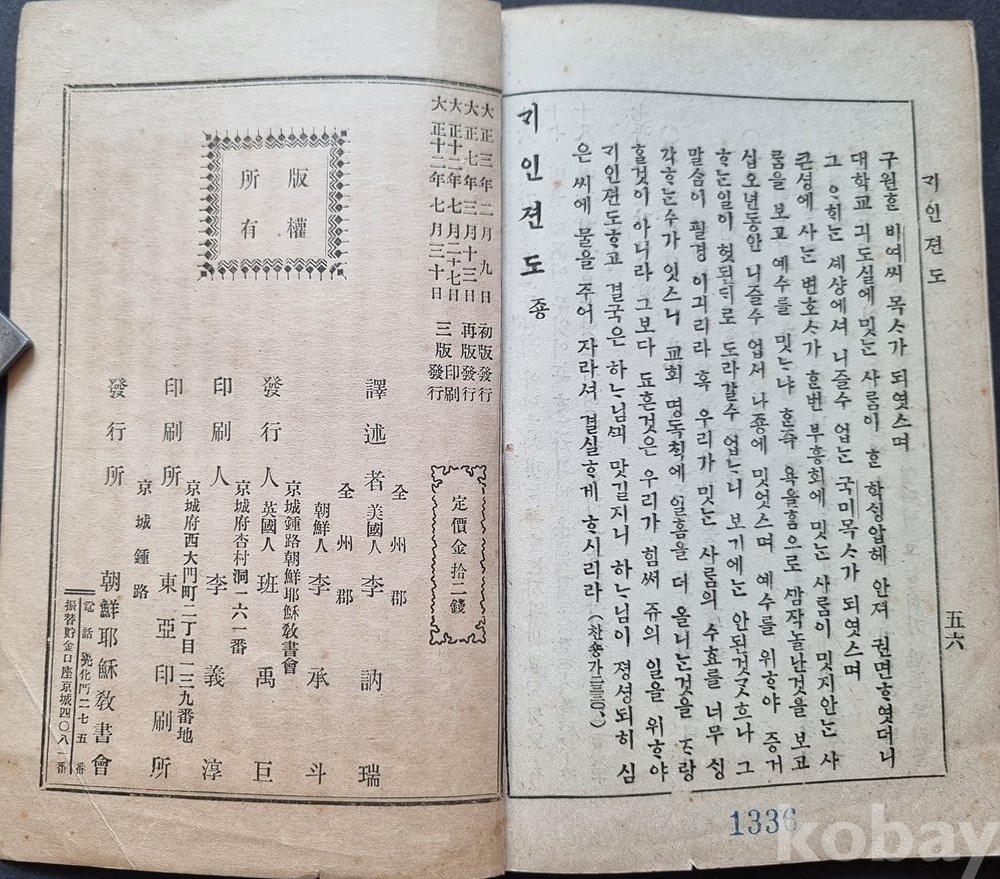 긔인젼도
五六
구원ᄒᆞᆫ 비여씨 목ᄉᆞ가 되엿스며
대학교 긔도실에 밋ᄂᆞᆫ 사ᄅᆞᆷ이 ᄒᆞᆫ 학ᄉᆡᆼ압헤 안져 권면ᄒᆞ엿더니
그 ᄋᆞ희ᄂᆞᆫ 셰샹에셔 니즐수 업ᄂᆞᆫ 국미목ᄉᆞ가 되엿스며
큰셩에 사ᄂᆞᆫ 변호ᄉᆞ가 ᄒᆞᆫ번 부흥회에 밋ᄂᆞᆫ 사ᄅᆞᆷ이 밋지안ᄂᆞᆫ 사
ᄅᆞᆷ을 보고 예수를 밋ᄂᆞ냐 ᄒᆞᆫ즉 욕을ᄒᆞᆷ으로 ᄭᅡᆷ작놀난것을 보고
십오년동안 니즐수 업서 나죵에 밋엇스며 예수를 위ᄒᆞ야 증거
ᄒᆞᄂᆞᆫ일이 헛된ᄃᆡ로 도라갈수 업ᄂᆞ니 보기에ᄂᆞᆫ 안된것ᄀᆞᆺ흐나 그
말ᄉᆞᆷ이 필경 이긔리라 혹 우리가 밋ᄂᆞᆫ 사ᄅᆞᆷ의 수효를 너무 ᄉᆡᆼ
각ᄒᆞᄂᆞᆫ수가 잇스니 교회 명독ᄎᆡᆨ에 일홈을 더 올니ᄂᆞᆫ것을 ᄌᆞ랑
ᄒᆞᆯ것이 아니라 그보다 됴흔것은 우리가 힘써 쥬의 일을 위ᄒᆞ야
긔인젼도ᄒᆞ고 결국은 하ᄂᆞ님ᄭᅴ 맛길지니 하ᄂᆞ님이 졍셩되히 심
은 씨에 물을 주어 자라셔 결실ᄒᆞ게 ᄒᆞ시리라
긔인젼도 죵
大正三年二月九日 初版發行
大正七年三月十三日 再版發行
大正十二年七月二十七日 印刷
大正十二年七月三十日 三版發行
定價金拾二錢
版權
所有
全州郡
譯述者 美國人 李訥瑞
全州郡
朝鮮人 李承斗
京城鍾路朝鮮耶穌敎書會
發行人 英國人 班禹巨
京城府杏村洞一六一番
印刷人 李義淳
京城府西大門町二丁目一三九番地
印刷所 東亞印刷所
京城鍾路
發行所 朝鮮耶穌敎書會
電話光化門二七五番
振替貯金口座京城四〇八一番
1336
kobay